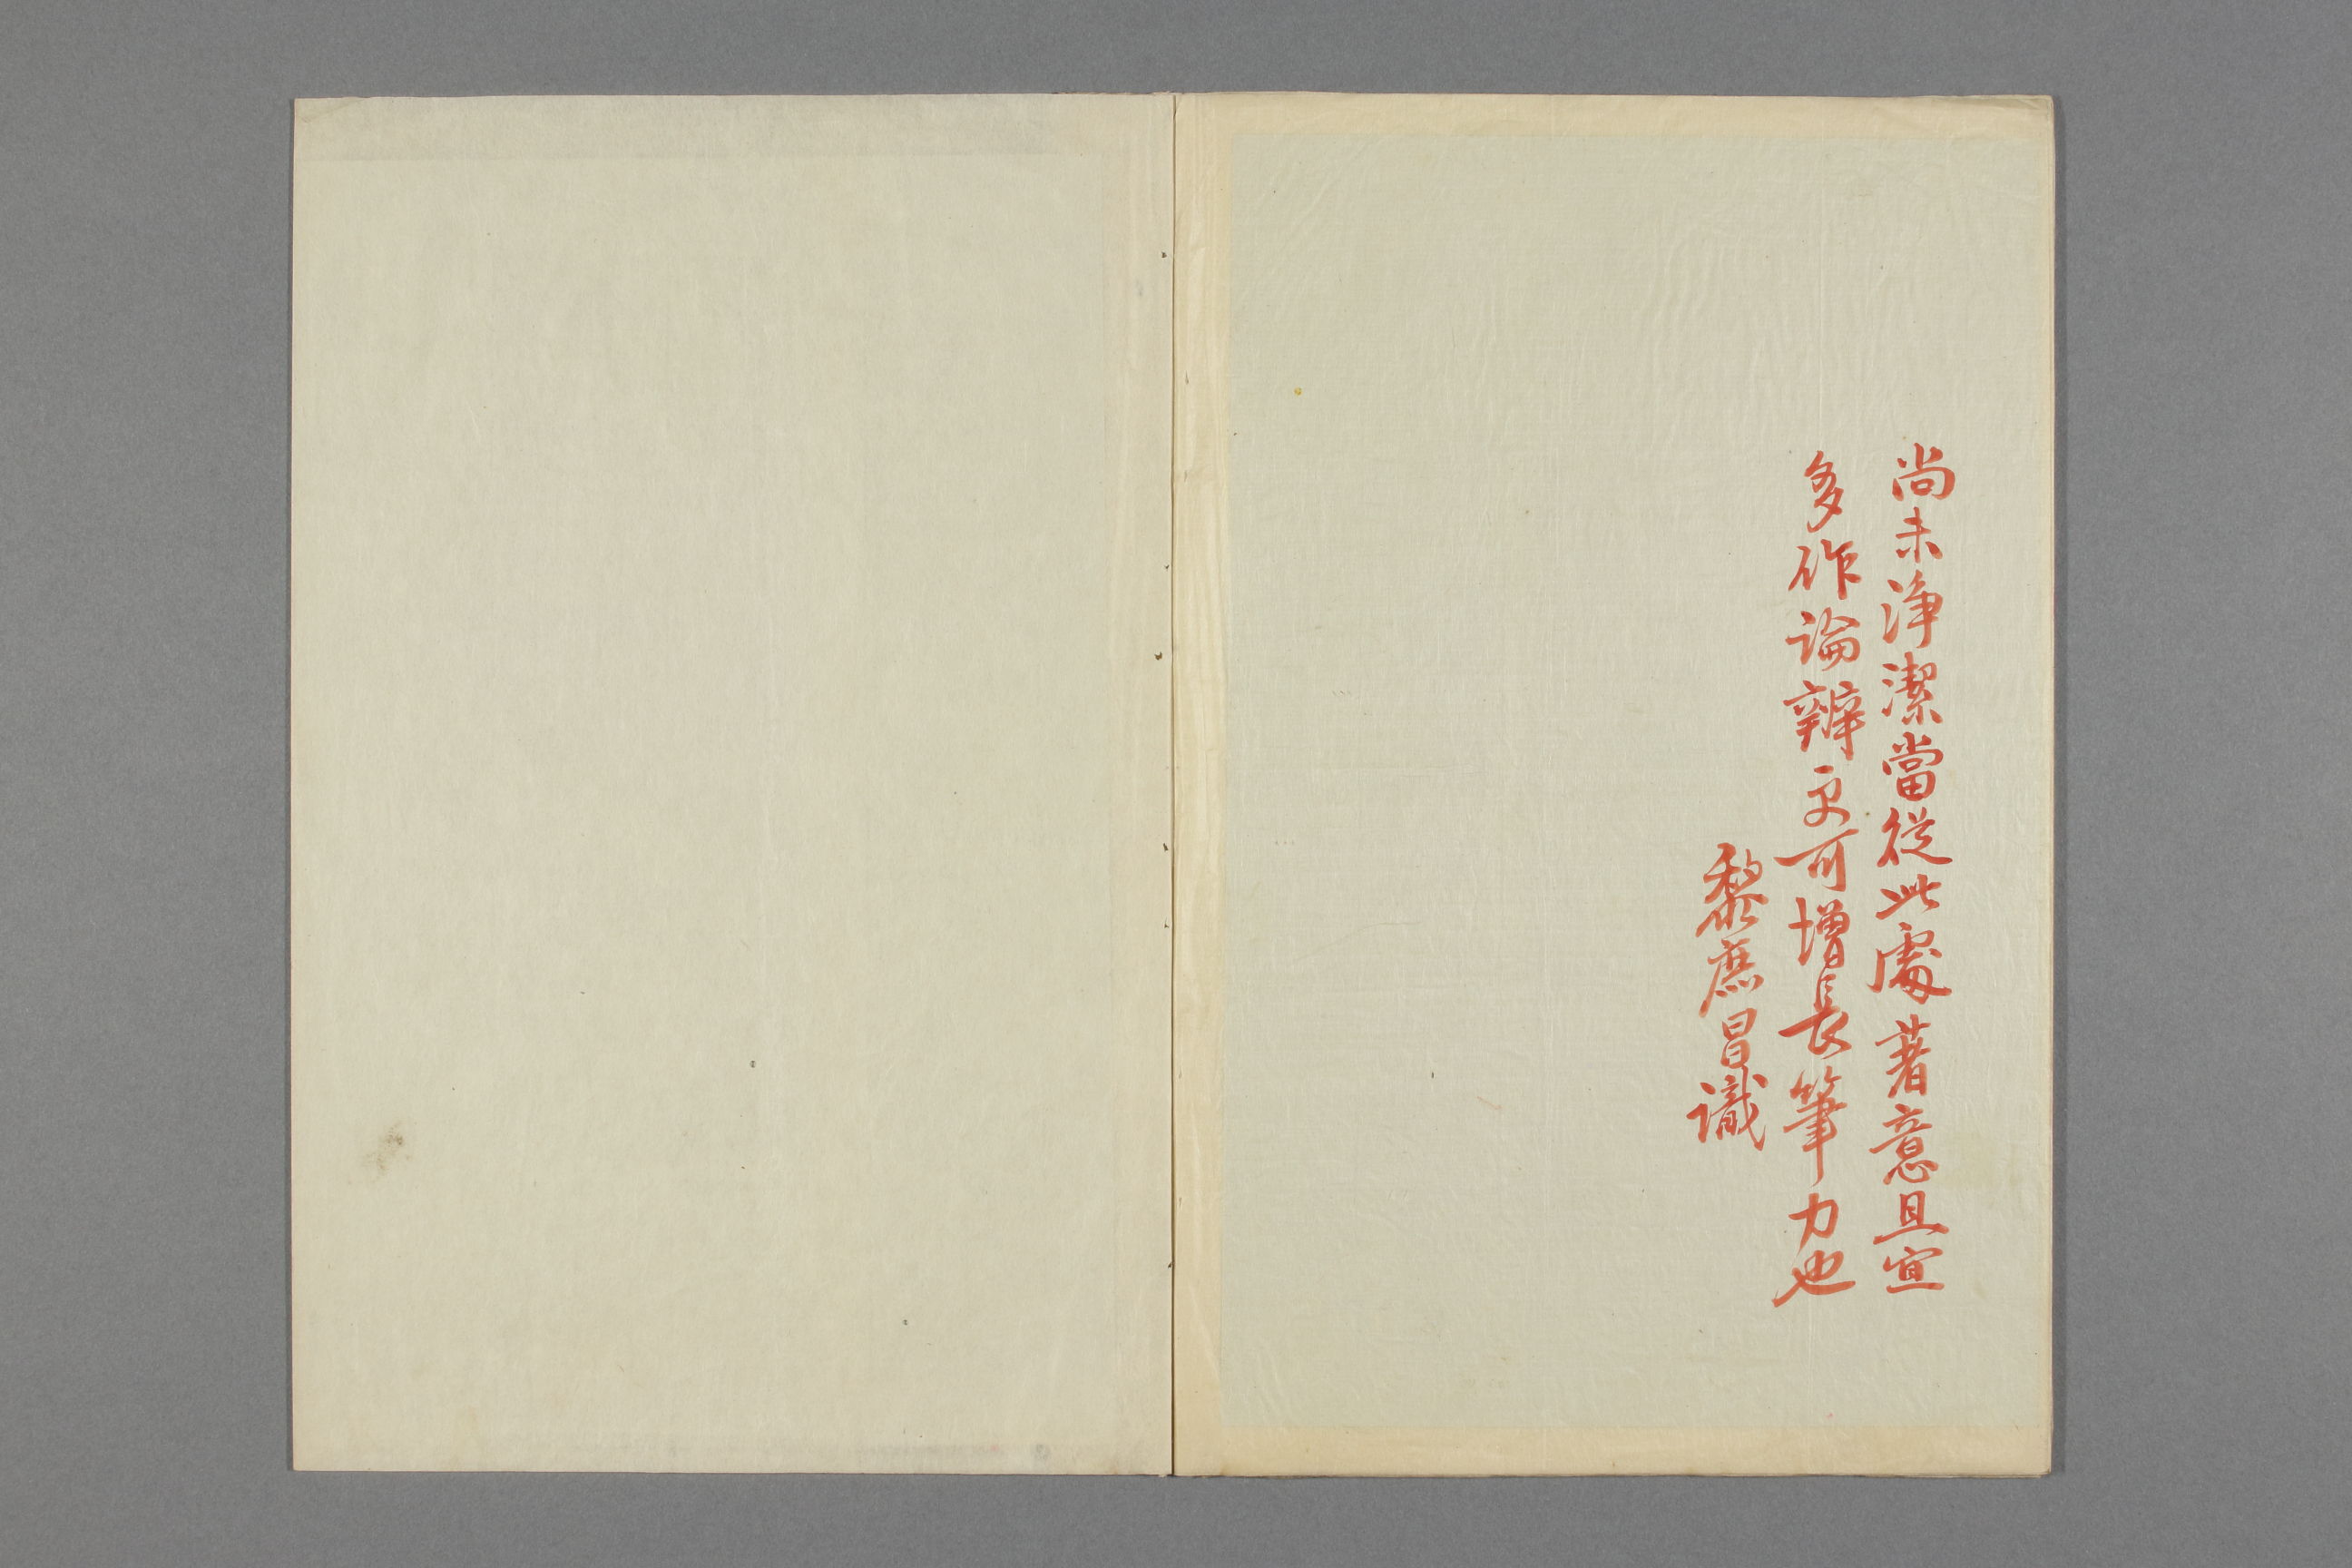 尚未淨潔當從此處著意且宜
多作論辨更可增長筆力也
黎庶昌識